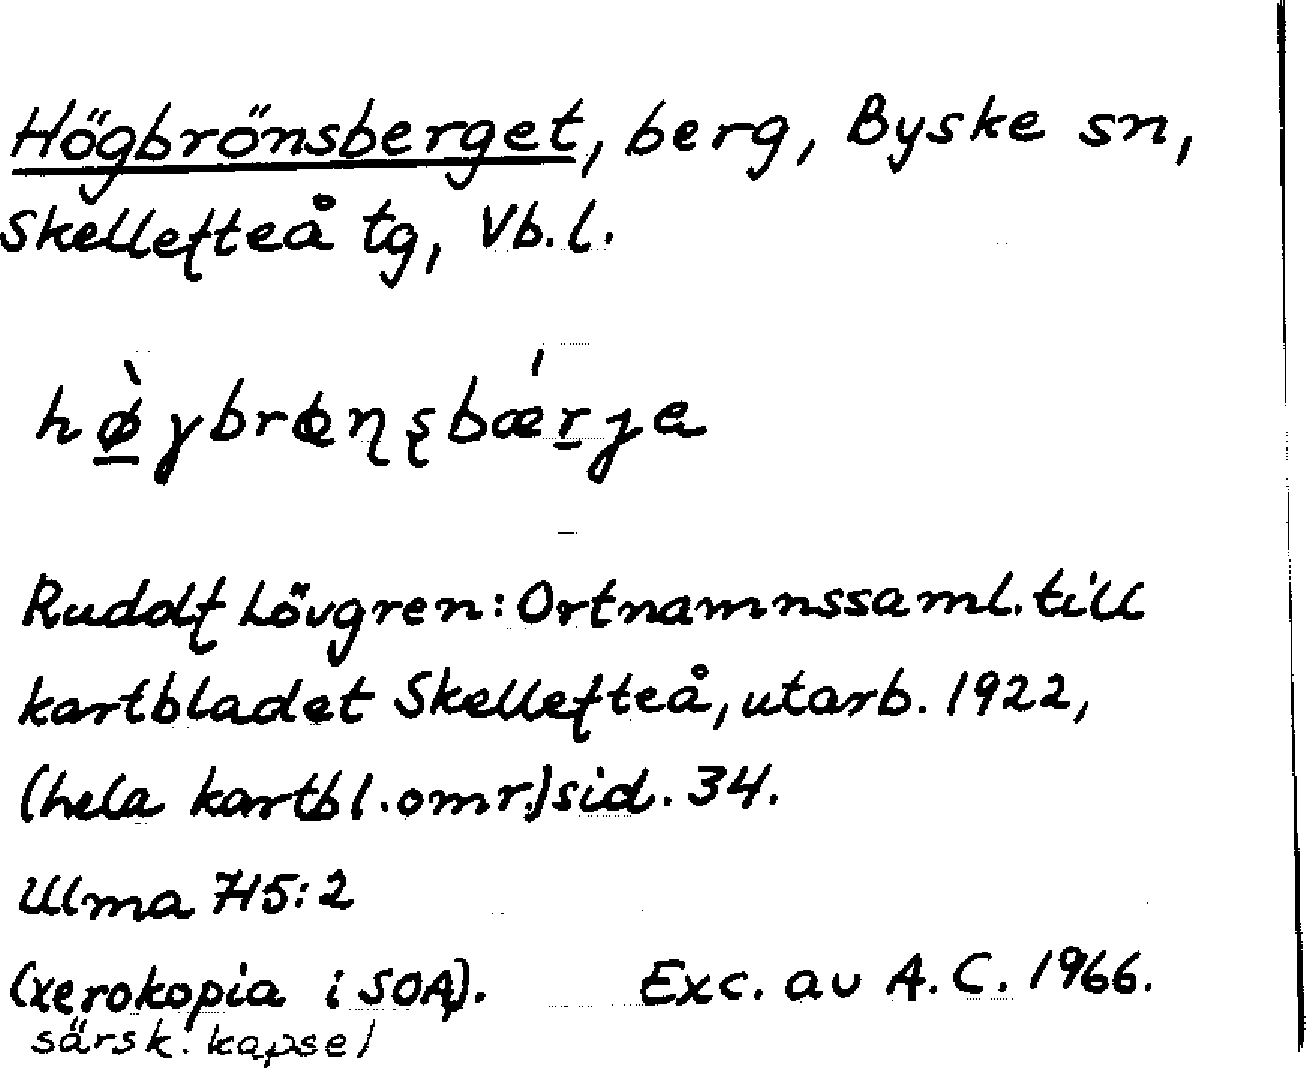 Högbrönsberget, berg, Byske sn,
Skellefteå tg, Vb.l.
hø̲̀ɣbrɵɳʂbǽr̲ɟa
Rudolf Lövgren: Ortnamnssaml. till
kartbladet Skellefteå, utarb. 1922,
(hela kartbl.omr.) sid. 34.
Ulma 745:2
(xerokopia i SOA). Exc. av A. C. 1966.
särsk. kapsel